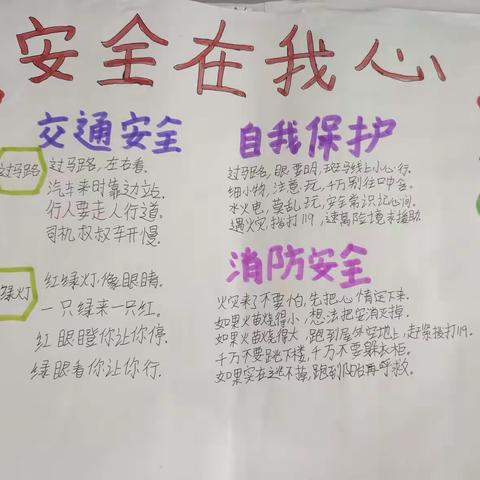 安全在我心
交通安全
过马路
过马路,左右看.
汽车来时靠边站.
行人要走人行道.
司机叔叔车开慢.
绿灯
红绿灯像眼睛.
一只绿来一只红.
红眼瞪你让你停.
绿眼看你让你行.
自我保护
过马路,眼要明,斑马线上小心行.
细小物,注意玩,千万别往口中含.
水火电,莫乱玩,安全常识记心间.
遇火灾,拨打119,速离险境来援助
消防安全
火灾来了不要怕,先把心情定下来.
如果火苗烧得小,想法把它消灭掉.
如果火苗烧得大,跑到屋外空地上,赶紧拨打119.
千万不要跳下楼,千万不要躲衣柜.
如果实在逃不掉,跑到阳台再呼救.